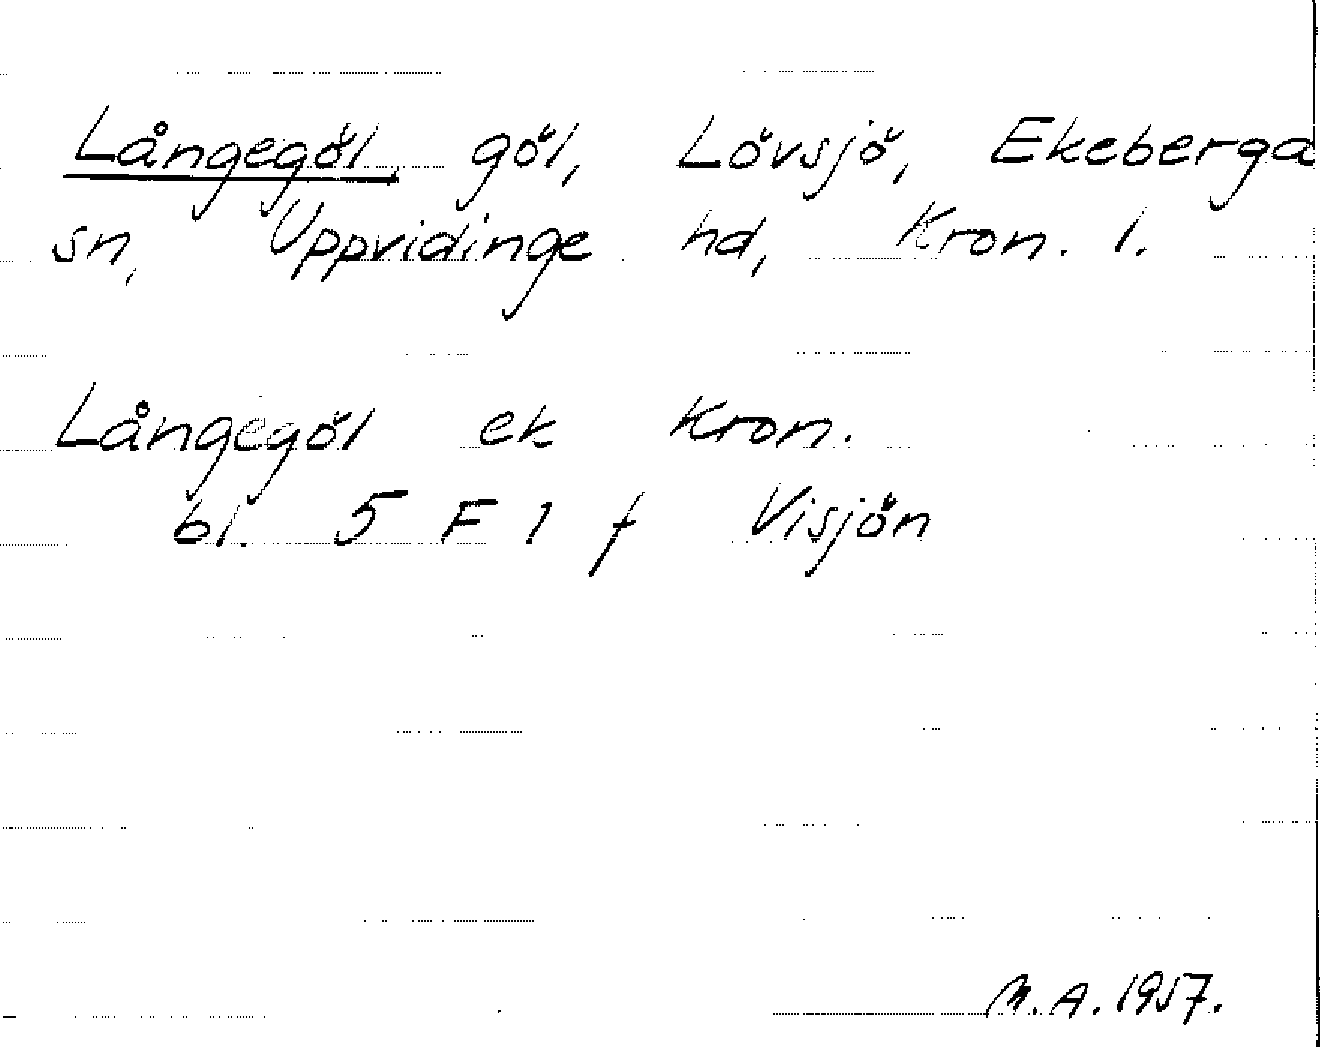 Långegöl göl, Lövsjö, Ekeberga
sn, Uppvidinge hd, Kron. l.
Långegöl ek Kron.
bl. 5 F 1 f Visjön
M.A. 1957.